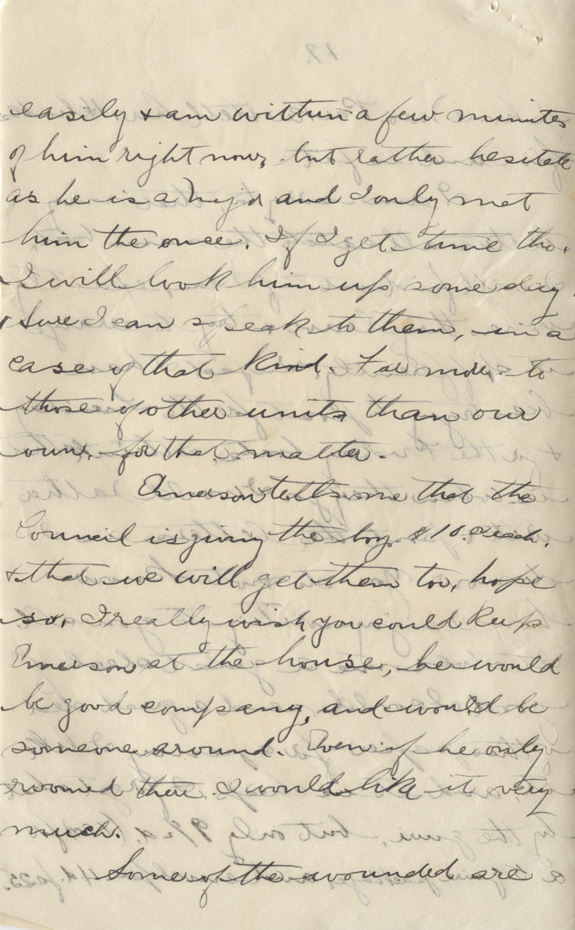 easily + am within a few minutes
of him right now, but rather hesitate
as he is a and I only met
him the once. If I get time tho.
I will look him up some day.
Sure I can speak to them, in a
case of that kind. Far more to
those of other units than our
own, for that matter.
Emerson tells me that the
Council is giving the boys $10. each.
+ that we will get them too, hope
so. I really wish you could keep
Emerson at the house, he would
be good company, and would be
someone around. Even if he only
roomed there I would like it very
much.
Some of the wounded are